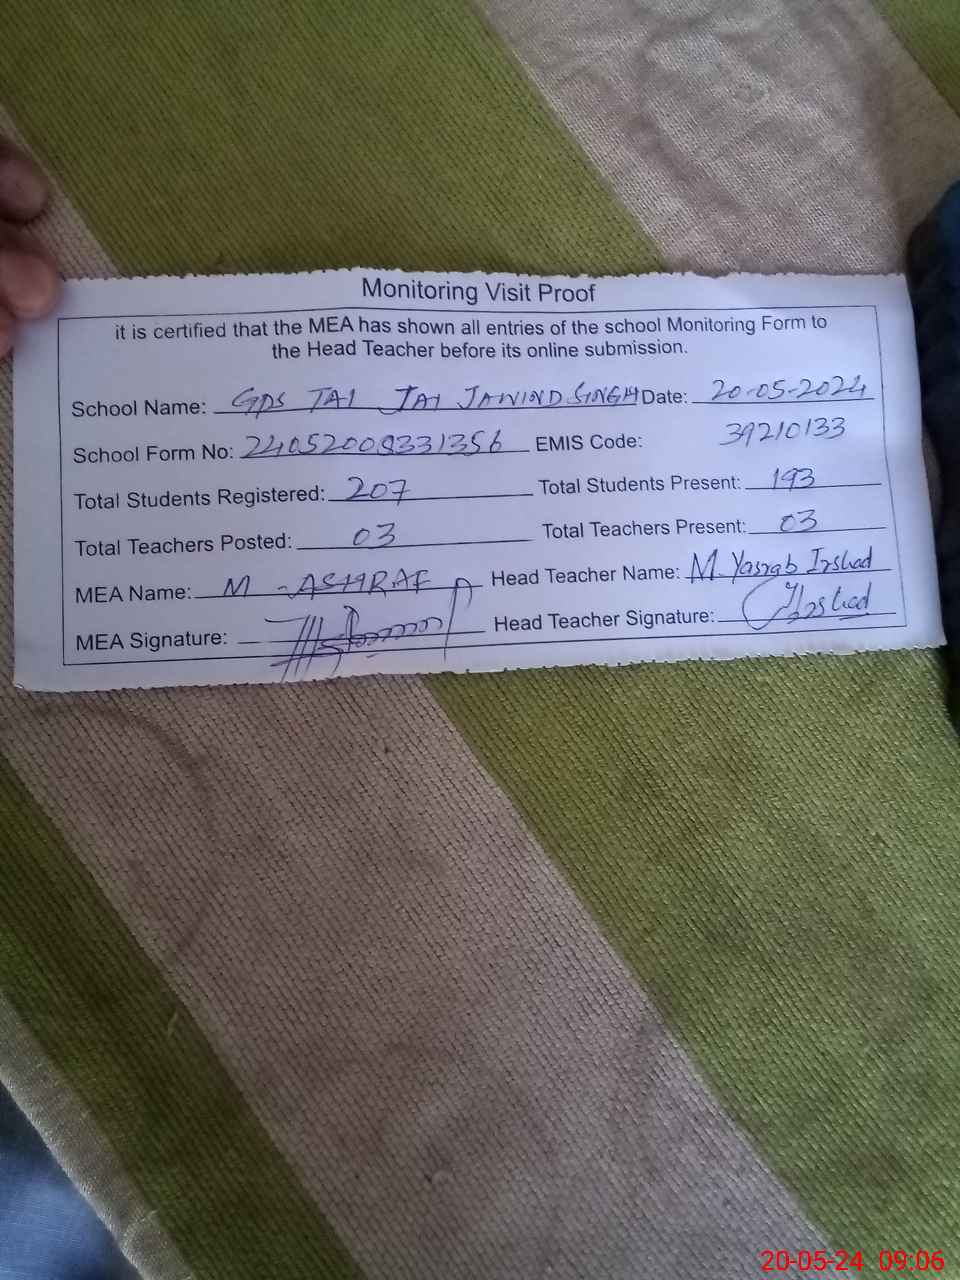 Monitoring Visit Proof
it is certified that the MEA has shown all entries of the school Monitoring Form to
the Head Teacher before its online submission.
School Name: GPS TAI JAI JAWIND SINGH Date: 20-05-2024
School Form No: 24052008331356 EMIS Code: 39210133
Total Students Registered: 207 Total Students Present: 193
Total Teachers Posted: 03 Total Teachers Present: 03
MEA Name: M - ASHRAF Head Teacher Name: M. Yasrab Irshad
MEA Signature: Head Teacher Signature: Irshad
20-05-24 09:06